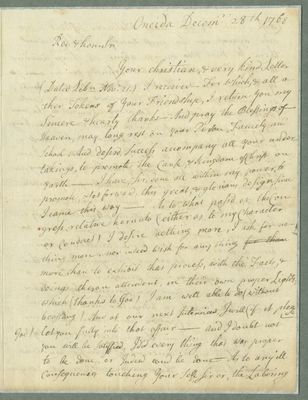 Oneida Decemr 28th 1768
Revd & hond Sir
Your christian, & very kind Letter
I receiv'd— For which, & all o
ther Tokens of Your Friendship, I return You my
Sincere & hearty thanks— And pray the Blessings of
Heaven, may long rest on Your Person, Family, and
School And desire Success accompany all your under
takings, to promote the Cause & Kingdom of Christ on
Earth— I have Sir done all within my power, to
promote, & set forward, this great & glorious design, since
I came this way— As to what pass'd at the Con
gress, relative hereunto (either as to my Character
or Conduct) I desire nothing more, I ask for no
thing more, nor indeed wish for any thing
more than to exhibit that process, with the Facts, &
doings thereon attendant, in their own proper Light,
which (thanks to God) I am well able to do, without
And at our next Interview, I will (if it please
God) let you fully into that affair— and I doubt not
you will be satisfied, I did every thing that was proper
to be done, or Indeed cou'd be done— As to any ill
Consequences touching Your Self Sir or, the Laboring